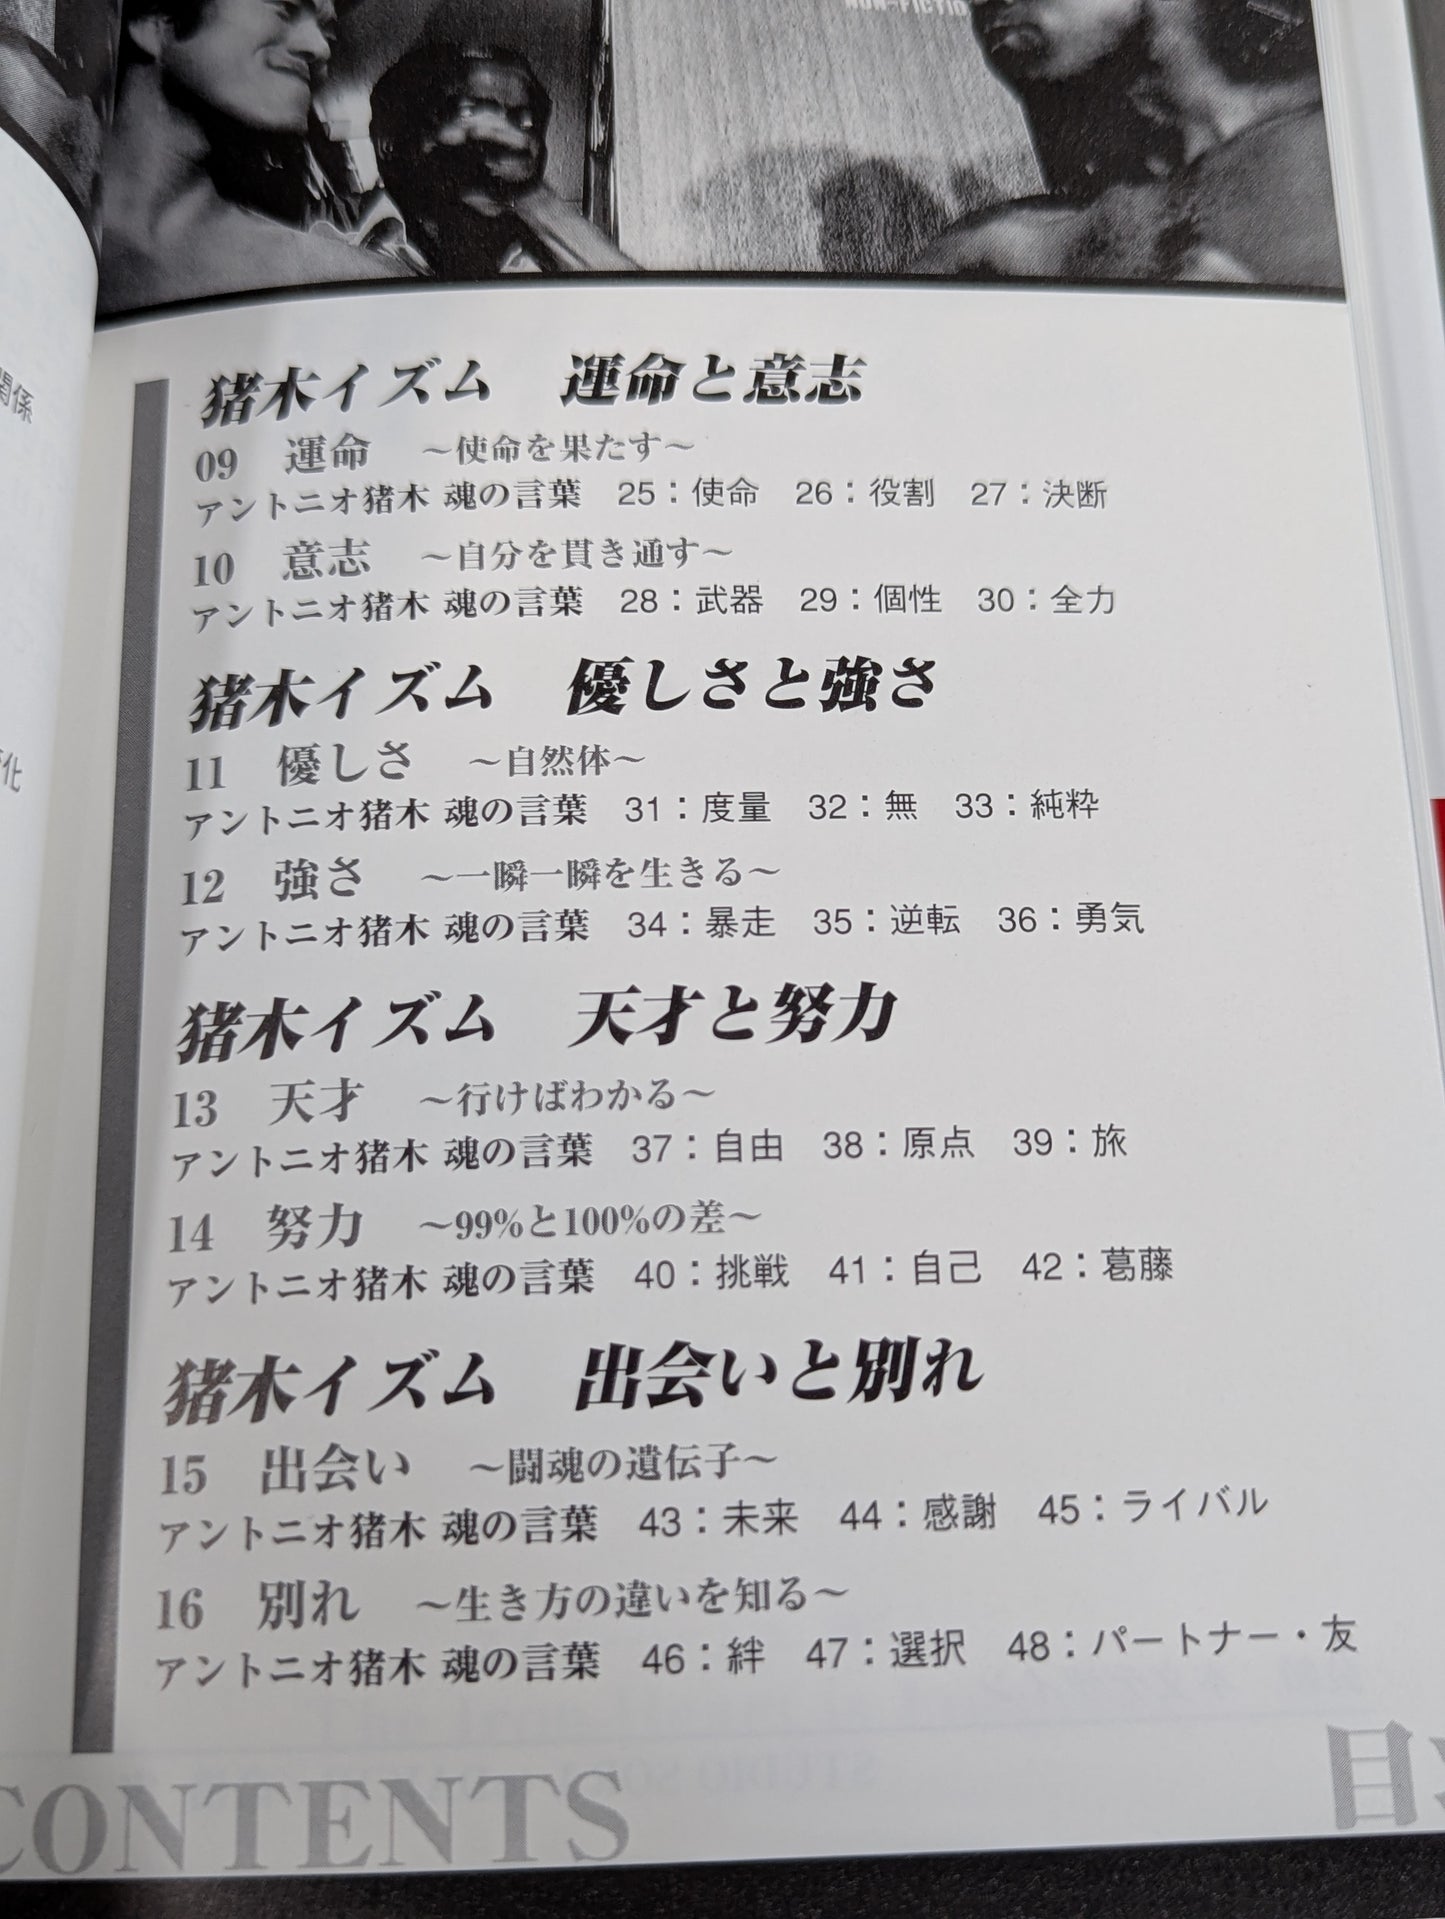 NON-FICTIO
関係
化
猪木イズム　運命と意志
09　運命　～使命を果たす～
アントニオ猪木 魂の言葉　25：使命　26：役割　27：決断
10　意志　～自分を貫き通す～
アントニオ猪木 魂の言葉　28：武器　29：個性　30：全力
猪木イズム　優しさと強さ
11　優しさ　～自然体～
アントニオ猪木 魂の言葉　31：度量　32：無　33：純粋
12　強さ　～一瞬一瞬を生きる～
アントニオ猪木 魂の言葉　34：暴走　35：逆転　36：勇気
猪木イズム　天才と努力
13　天才　～行けばわかる～
アントニオ猪木 魂の言葉　37：自由　38：原点　39：旅
14　努力　～99%と100%の差～
アントニオ猪木 魂の言葉　40：挑戦　41：自己　42：葛藤
猪木イズム　出会いと別れ
15　出会い　～闘魂の遺伝子～
アントニオ猪木 魂の言葉　43：未来　44：感謝　45：ライバル
16　別れ　～生き方の違いを知る～
アントニオ猪木 魂の言葉　46：絆　47：選択　48：パートナー・友
CONTENTS
目